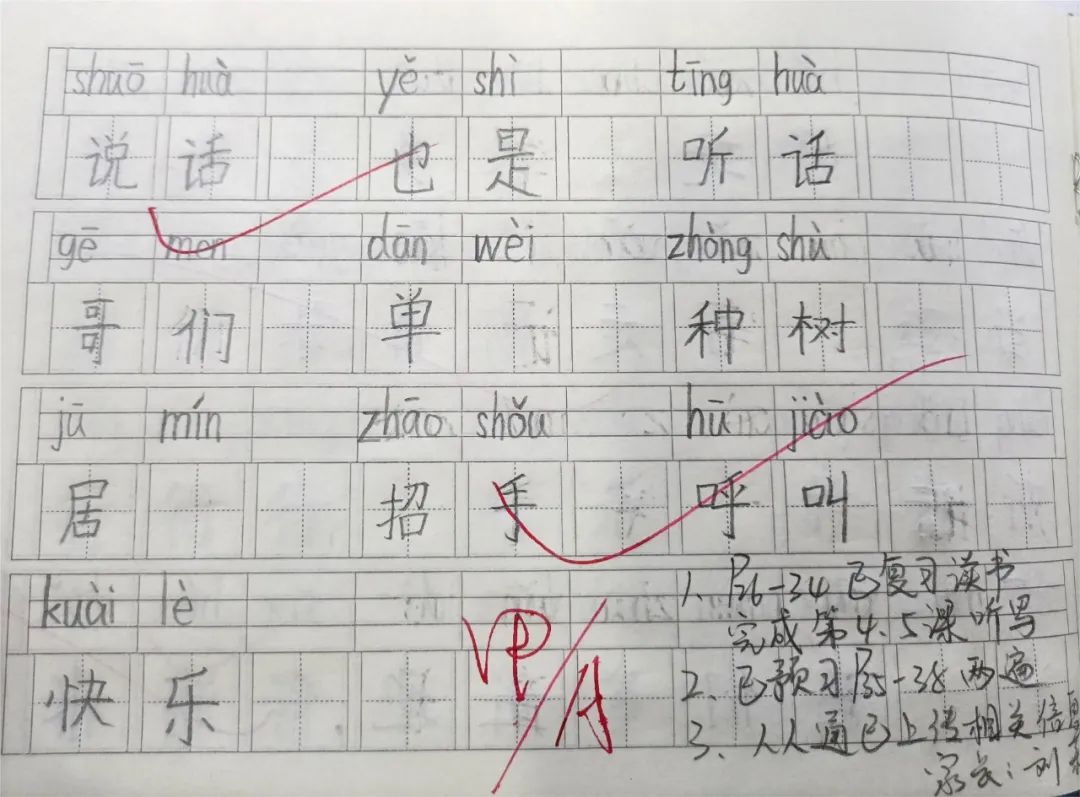 shuō huà yě shì tīng huà
说话 也是 听话
gē men dān wèi zhòng shù
哥们 单 种树
jū mín zhāo shǒu hū jiào
居 招手 呼叫
kuài lè
快乐
1、P26-34已复习读书
完成第4、5课听写
2、已预习P35-38两遍
3、人人通已上传相关信息
家长:刘
A